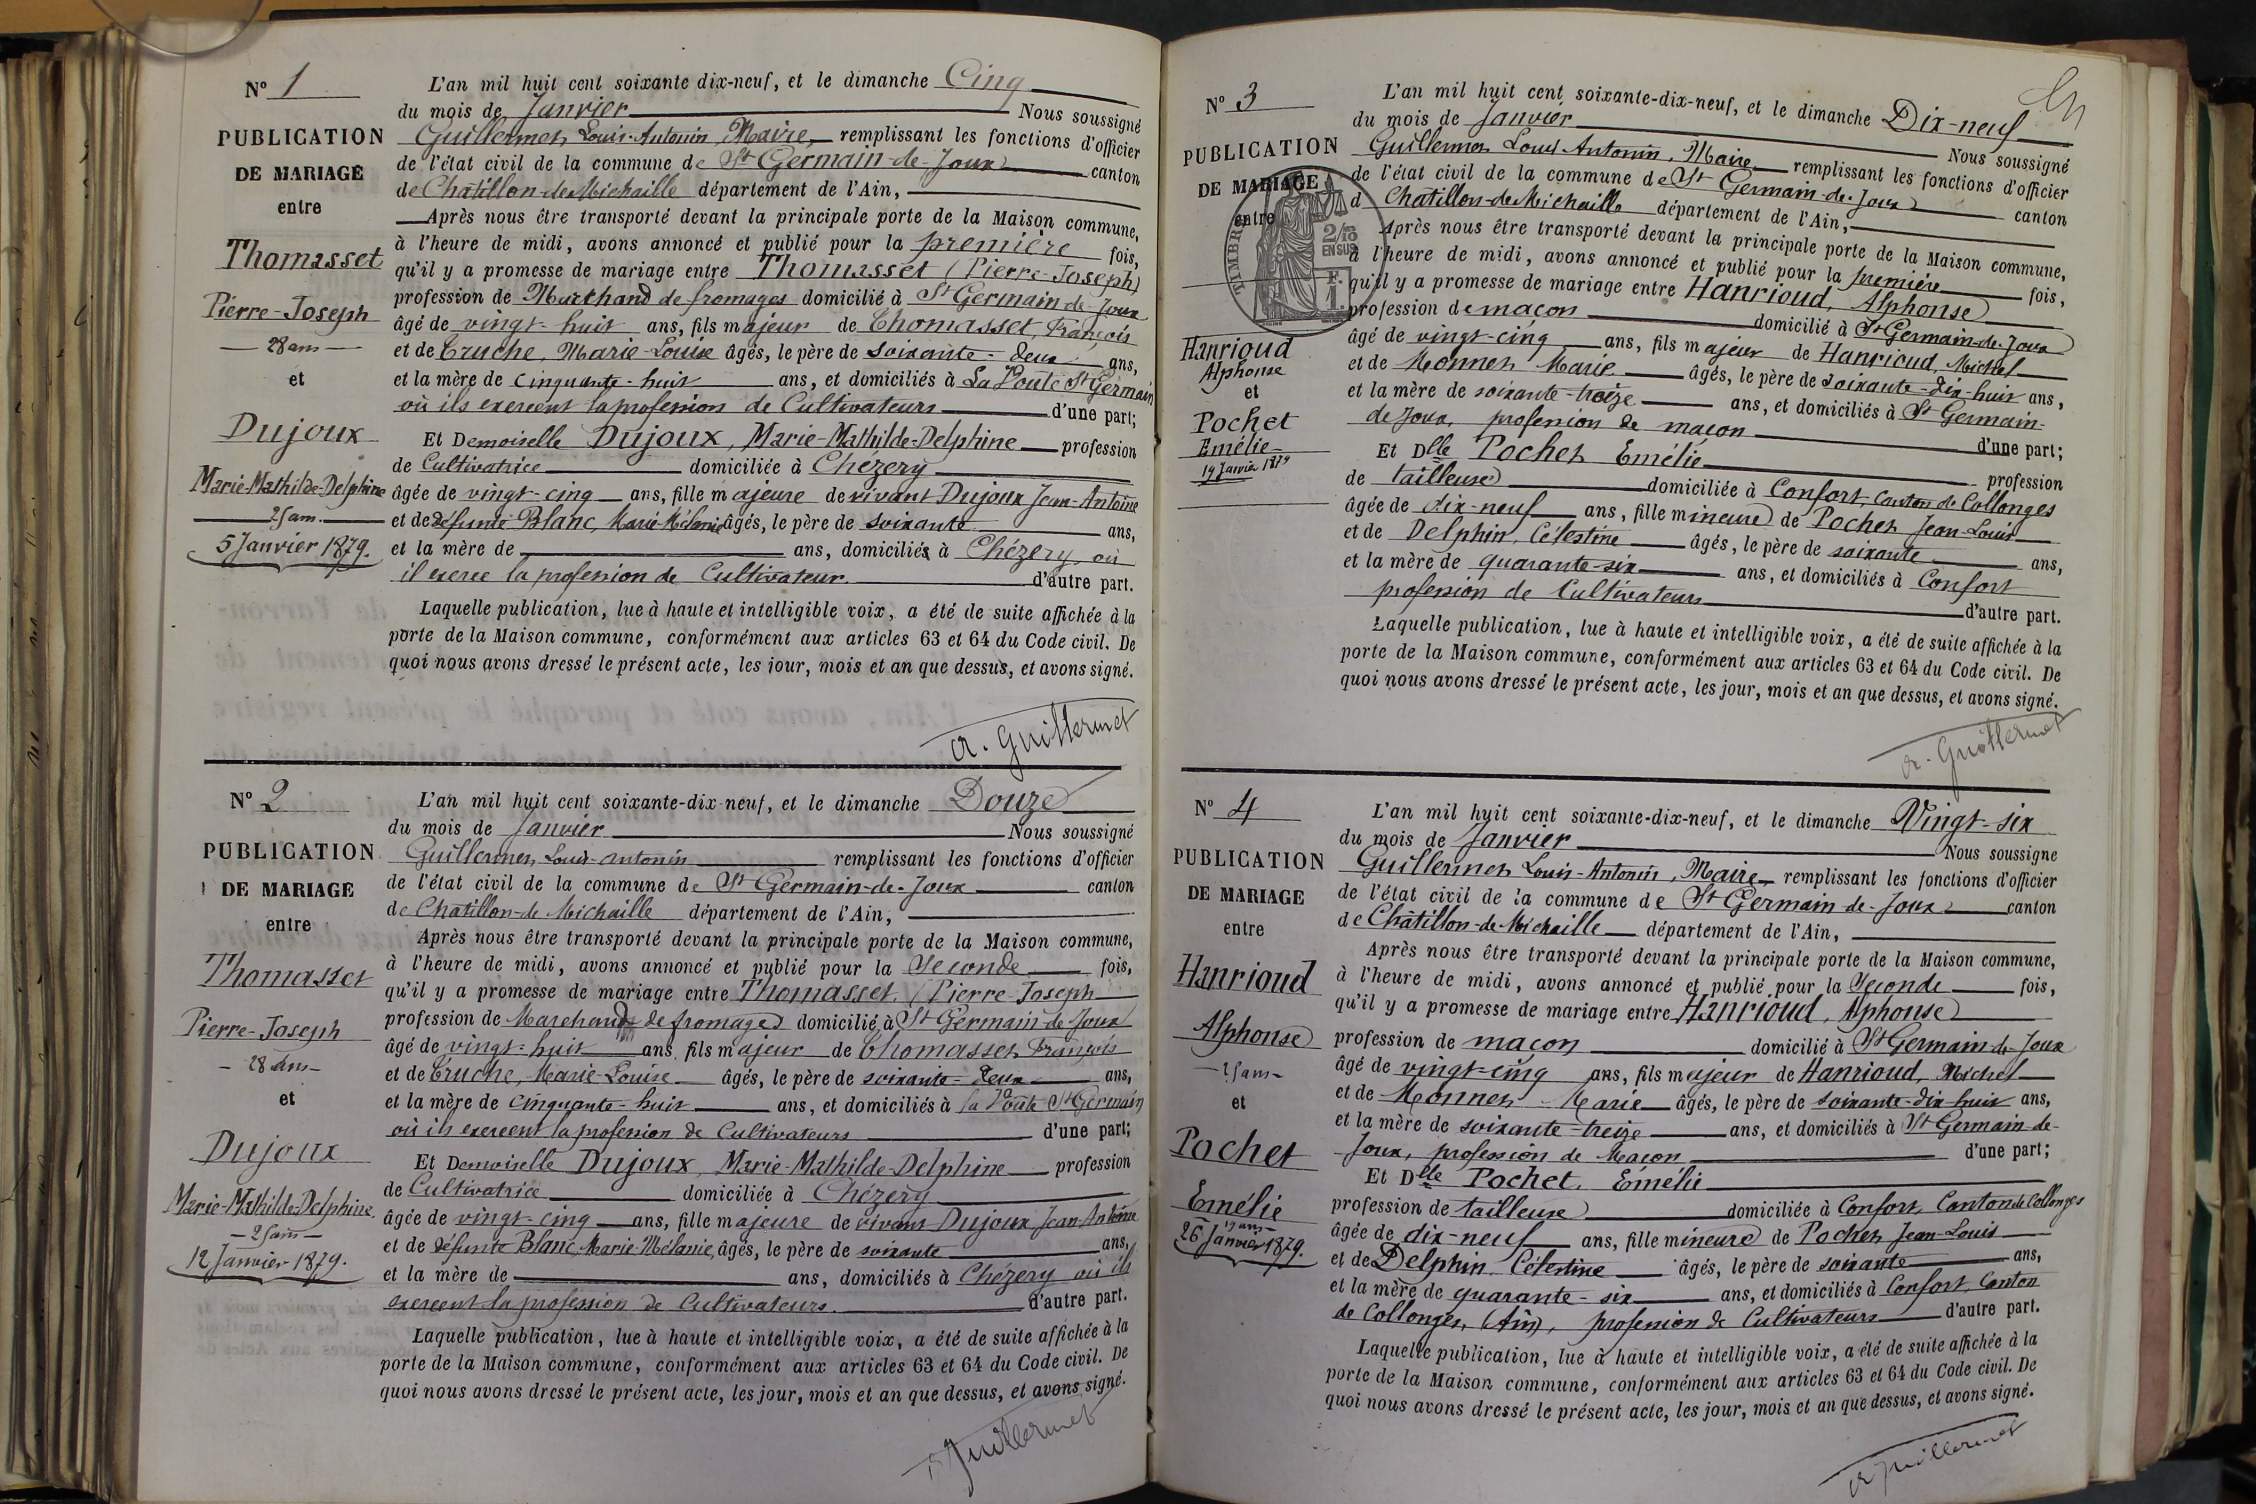 N° 1
PUBLICATION
DE MARIAGE
entre
Thomasset
Pierre-Joseph
28 ans
et
Dujoux
Marie-Mathilde-Delphine
25 ans.
5 Janvier 1879.
L'an mil huit cent soixante dix-neuf, et le dimanche Cinq
du mois de Janvier Nous soussigné
Guillermet Louis-Antonin, Maire, remplissant les fonctions d'officier
de l'état civil de la commune de St Germain-de-Joux canton
de Châtillon-de-Michaille département de l'Ain,
Après nous être transporté devant la principale porte de la Maison commune,
à l'heure de midi, avons annoncé et publié pour la première fois,
qu'il y a promesse de mariage entre Thomasset (Pierre-Joseph)
profession de Marchand de fromages domicilié à St Germain-de-Joux
âgé de vingt-huit ans, fils majeur de Thomasset, François
et de Truche, Marie-Louise âgés, le père de soixante-deux ans,
et la mère de cinquante-huit ans, et domiciliés à La Voûte St Germain
où ils exercent la profession de Cultivateurs d'une part;
Et Demoiselle Dujoux, Marie-Mathilde-Delphine profession
de Cultivatrice domiciliée à Chézery
âgée de vingt-cinq ans, fille majeure de vivant Dujoux Jean-Antoine
et de défunte Blanc, Marie-Mélanie âgés, le père de soixante ans,
et la mère de ans, domiciliés à Chézery où
il exerce la profession de Cultivateur. d'autre part.
Laquelle publication, lue à haute et intelligible voix, a été de suite affichée à la
porte de la Maison commune, conformément aux articles 63 et 64 du Code civil. De
quoi nous avons dressé le présent acte, les jour, mois et an que dessus, et avons signé.
A. Guillermet
N° 2
PUBLICATION
DE MARIAGE
entre
Thomasset
Pierre-Joseph
28 ans
et
Dujoux
Marie-Mathilde-Delphine
25 ans
12 Janvier 1879.
L'an mil huit cent soixante-dix-neuf, et le dimanche Douze
du mois de Janvier Nous soussigné
Guillermet Louis-Antonin remplissant les fonctions d'officier
de l'état civil de la commune de St Germain-de-Joux canton
de Châtillon-de-Michaille département de l'Ain,
Après nous être transporté devant la principale porte de la Maison commune,
à l'heure de midi, avons annoncé et publié pour la Seconde fois,
qu'il y a promesse de mariage entre Thomasset, (Pierre-Joseph
profession de Marchand de fromages domicilié à St Germain-de-Joux
âgé de vingt-huit ans, fils majeur de Thomasset François
et de Truche, Marie-Louise âgés, le père de soixante-deux ans,
et la mère de cinquante-huit ans, et domiciliés à la Voûte St Germain
où ils exercent la profession de Cultivateurs d'une part;
Et Demoiselle Dujoux Marie-Mathilde-Delphine profession
de Cultivatrice domiciliée à Chézery
âgée de vingt-cinq ans, fille majeure de vivant Dujoux Jean-Antoine
et de défunte Blanc Marie-Mélanie, âgés, le père de soixante ans,
et la mère de ans, domiciliés à Chézery où ils
exercent la profession de Cultivateurs. d'autre part.
Laquelle publication, lue à haute et intelligible voix, a été de suite affichée à la
porte de la Maison commune, conformément aux articles 63 et 64 du Code civil. De
quoi nous avons dressé le présent acte, les jour, mois et an que dessus, et avons signé.
A Guillermet
N° 3
PUBLICATION
DE MARIAGE
entre
TIMBRE
2/10
EN SUS
F.
1.
Hanrioud
Alphonse
et
Pochet
Emélie
19 Janvier 1879
L'an mil huit cent soixante-dix-neuf, et le dimanche Dix-neuf
du mois de Janvier Nous soussigné
Guillermet Louis Antonin, Maire remplissant les fonctions d'officier
de l'état civil de la commune de St Germain-de-Joux canton
d Chatillon-de-Michaille département de l'Ain,
Après nous être transporté devant la principale porte de la Maison commune,
à l'heure de midi, avons annoncé et publié pour la première fois,
qu'il y a promesse de mariage entre Hanrioud, Alphonse
profession de maçon domicilié à St Germain-de-Joux
âgé de vingt-cinq ans, fils majeur de Hanrioud, Michel
et de Monnet Marie âgés, le père de soixante-dix-huit ans,
et la mère de soixante-treize ans, et domiciliés à St Germain-
de-Joux, profession de maçon d'une part;
Et Dlle Pochet Emélie profession
de tailleuse domiciliée à Confort, Canton de Collonges
âgée de dix-neuf ans, fille mineure de Pochet Jean-Louis
et de Delphin, Célestine âgés, le père de soixante ans,
et la mère de quarante-six ans, et domiciliés à Confort
profession de Cultivateurs d'autre part.
Laquelle publication, lue à haute et intelligible voix, a été de suite affichée à la
porte de la Maison commune, conformément aux articles 63 et 64 du Code civil. De
quoi nous avons dressé le présent acte, les jour, mois et an que dessus, et avons signé.
A. Guillermet
N° 4
PUBLICATION
DE MARIAGE
entre
Hanrioud
Alphonse
25 ans
et
Pochet
Emélie
19 ans
26 Janvier 1879.
L'an mil huit cent soixante-dix-neuf, et le dimanche Vingt-six
du mois de Janvier Nous soussigné
Guillermet Louis-Antonin, Maire, remplissant les fonctions d'officier
de l'état civil de la commune de St Germain-de-Joux canton
de Châtillon-de-Michaille département de l'Ain,
Après nous être transporté devant la principale porte de la Maison commune,
à l'heure de midi, avons annoncé et publié pour la Seconde fois,
qu'il y a promesse de mariage entre Hanrioud, Alphonse
profession de maçon domicilié à St Germain-de-Joux
âgé de vingt-cinq ans, fils majeur de Hanrioud, Michel
et de Monnet Marie âgés, le père de soixante-dix-huit ans,
et la mère de soixante-treize ans, et domiciliés à St Germain-de-
Joux, profession de Maçon d'une part;
Et Dlle Pochet, Emélie
profession de tailleuse domiciliée à Confort, Canton de Collonges
âgée de dix-neuf ans, fille mineure de Pochet Jean-Louis
et de Delphin Célestine âgés, le père de soixante ans,
et la mère de quarante-six ans, et domiciliés à Confort, Canton
de Collonges, (Ain), profession de Cultivateurs d'autre part.
Laquelle publication, lue à haute et intelligible voix, a été de suite affichée à la
porte de la Maison commune, conformément aux articles 63 et 64 du Code civil. De
quoi nous avons dressé le présent acte, les jour, mois et an que dessus, et avons signé.
A Guillermet